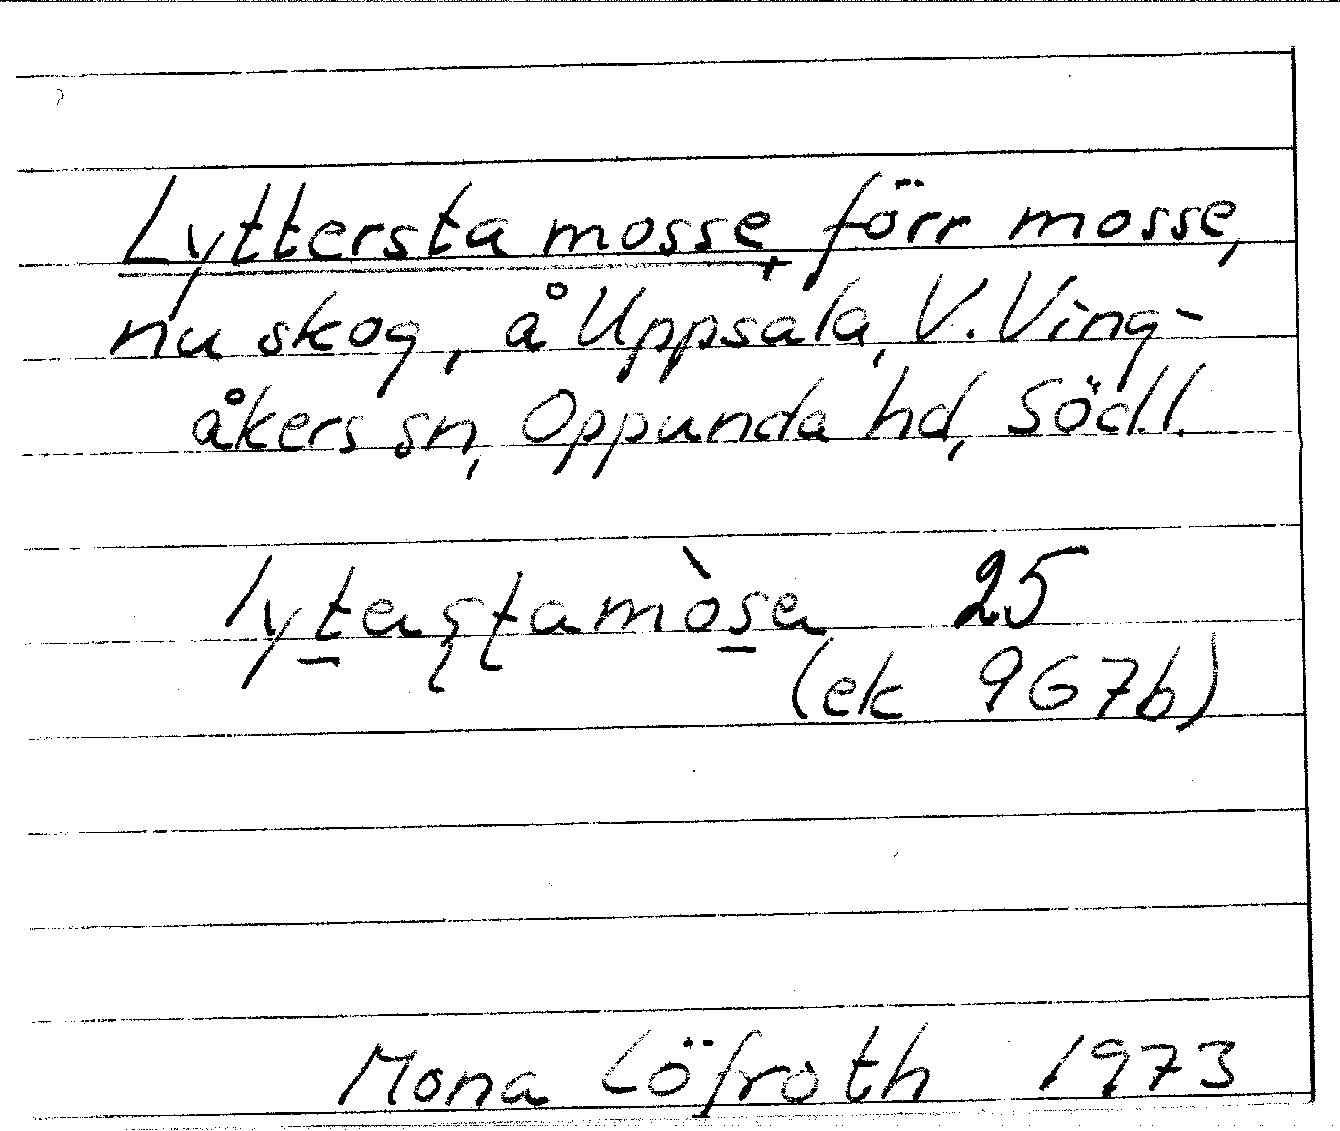 Lyttersta mosse, förr mosse,
nu skog, å Uppsala, V. Ving-
åkers sn, Oppunda hd, Södl.
25
(ek 967b)
Mona Löfroth 1973